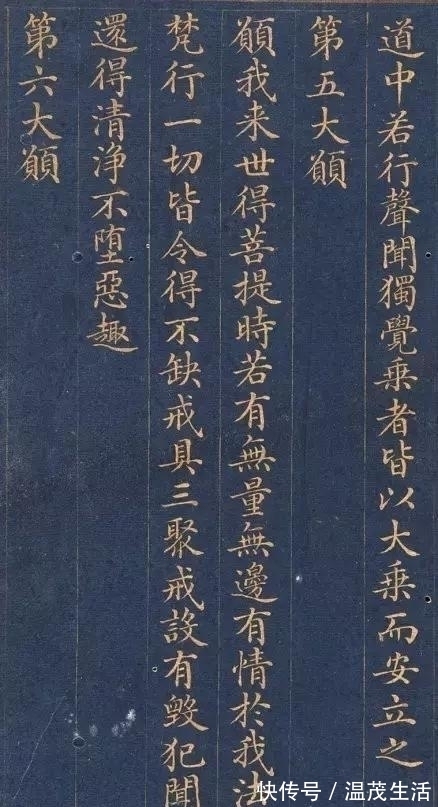 道中若行聲聞獨覺乘者皆以大乘而安立之
第五大願
願我来世得菩提時若有無量無邊有情於我法
梵行一切皆令得不缺戒具三聚戒設有毀犯聞
還得清淨不堕惡趣
第六大願
快传号 / 温茂生活